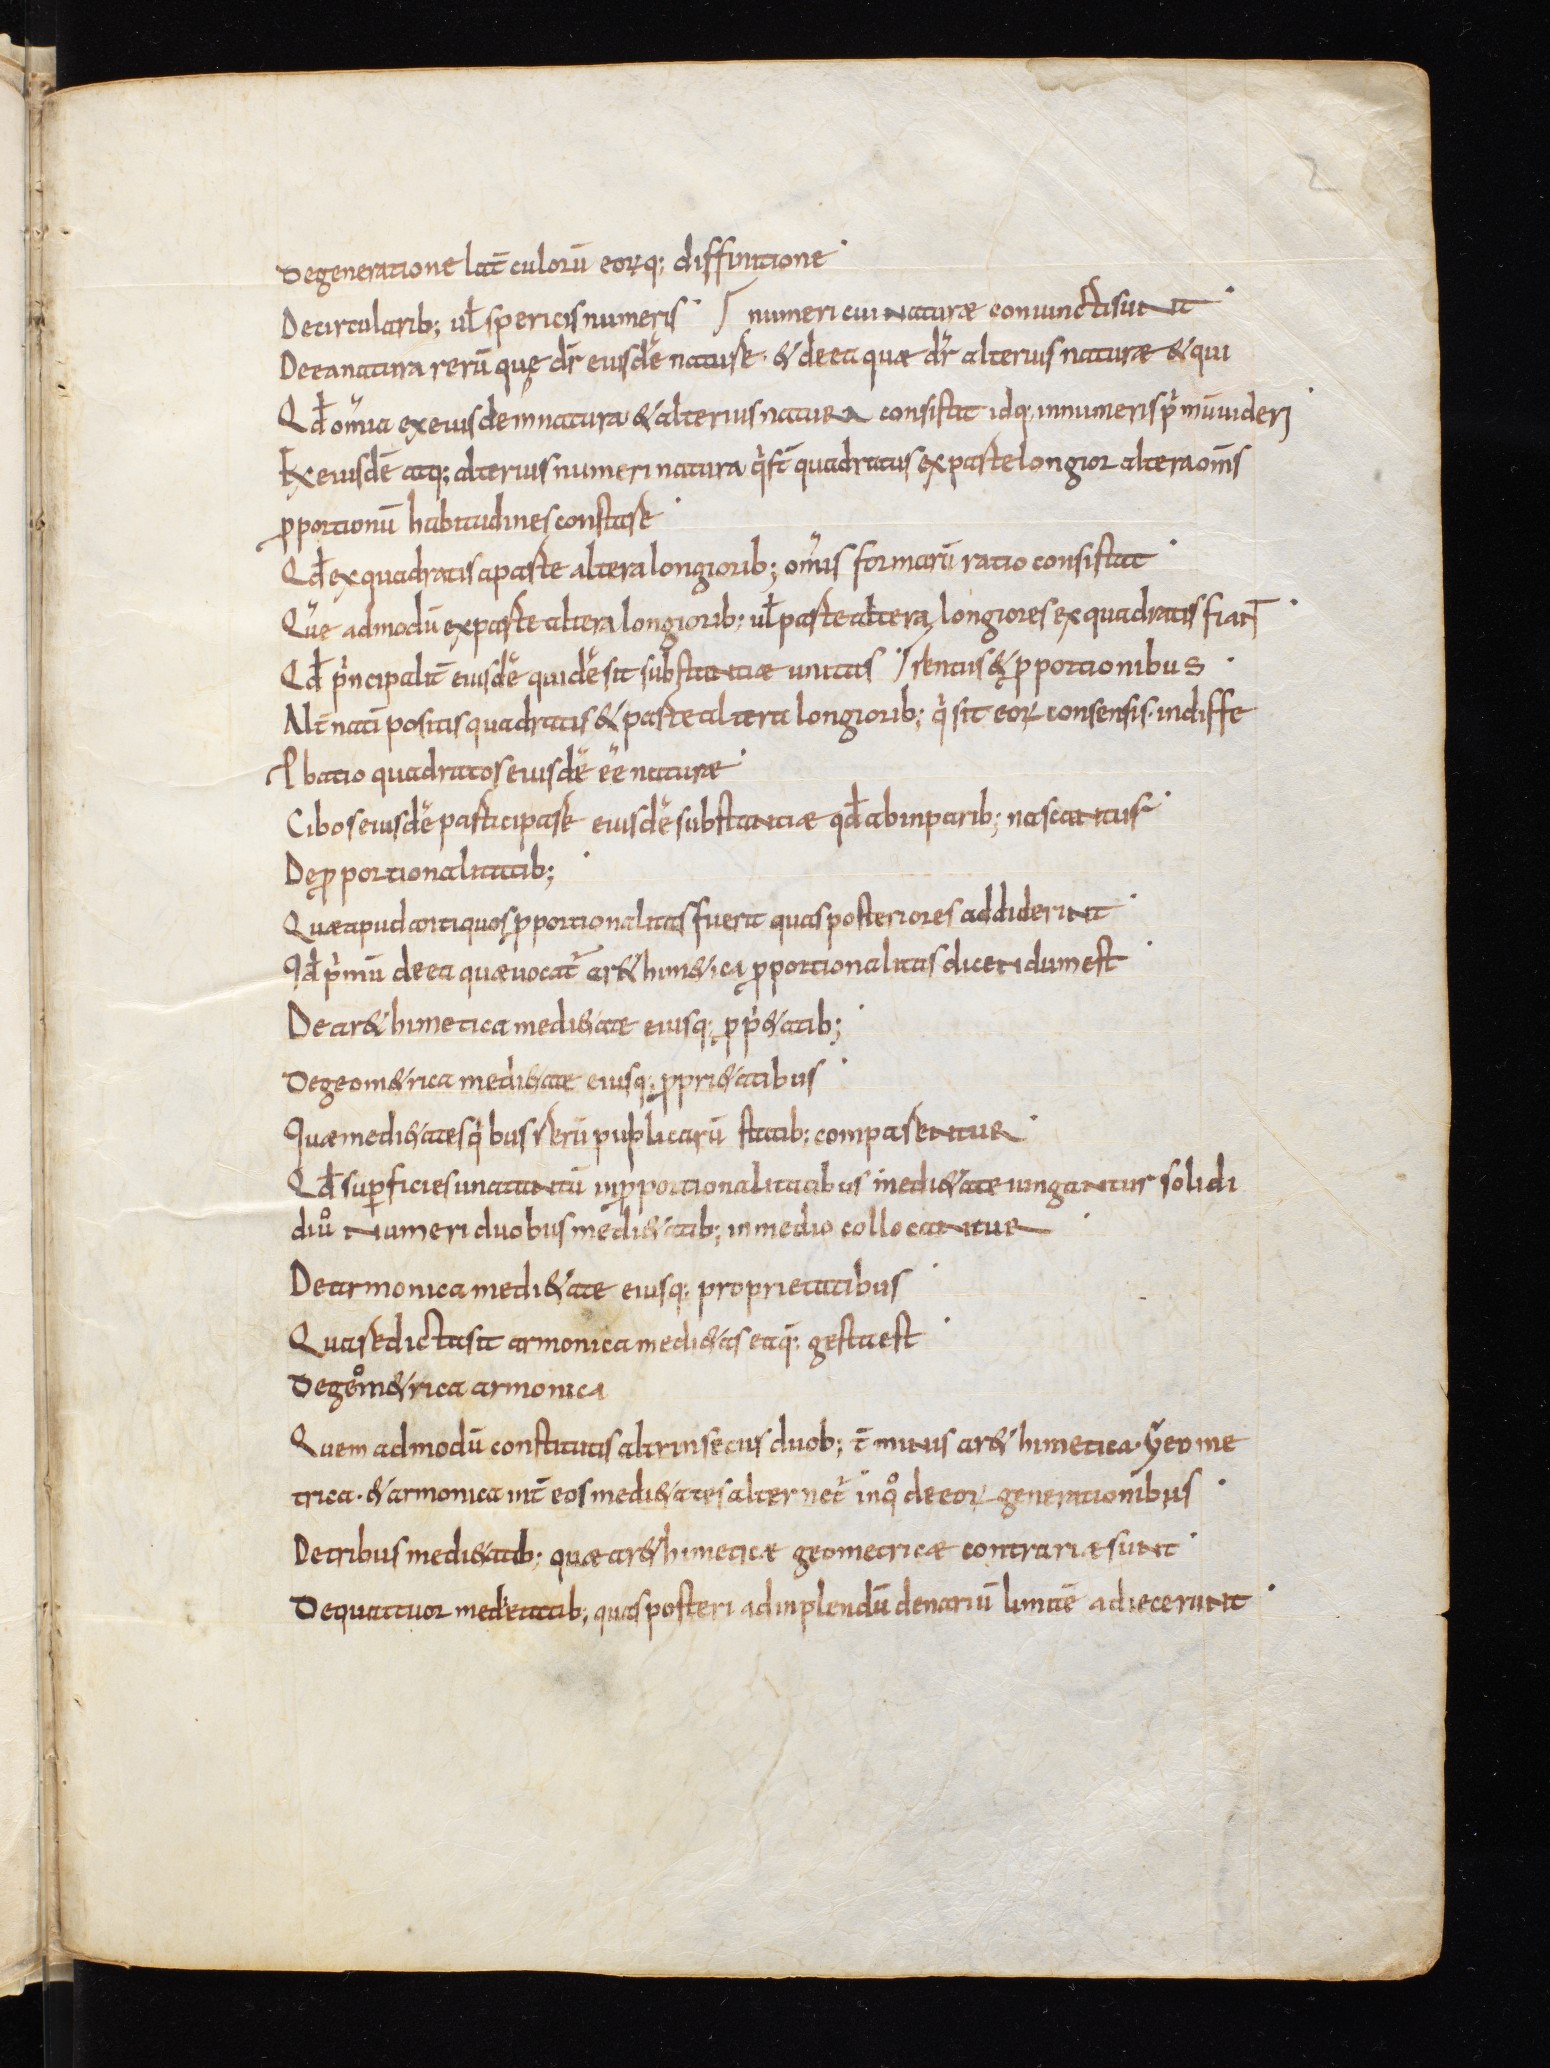 2
De generatione lat̄ culorū eorꝝq; diffinitione
De circularib; ul̄ spericis numeris / numeri cui naturæ coniuncti sunt
De ea natura rerū quę dr̄ eiusdē naturæ · & de ea quæ dr̄ alterius naturæ & qui
Qd̄ om̄ia ex eiusdem natura & alterius natura consistat idq; in numeris p̓mū uideri
Ex eiusdē atq; alterius numeri natura q̓ st̄ quadratus ex parte longior altera om̄s
ꝓportionū habitudines constare
Qd̄ ex quadratis a parte altera longiorib; om̄is formarū ratio consistat
Quē admodū ex parte altera longiorib; ul̄ parte altera longiores ex quadratis fiant
Qd̄ p̓ncipalit̄ eiusdē quidē sit substantiæ unitas / rentiis & ꝓportionibus
Alt̄natī positis quadratis & parte altera longiorib; q̓ sit eoꝝ consensis · in diffe
Ꝓbatio quadratos eiusdē ēē naturæ
Cibos eiusdē participare eiusdē substantiæ qd̄ ab inparib; nascantur
De ꝓportionalitatib;
Quæ apud antiquos ꝓportionalitas fuerit quas posteriores addiderint
Qd̄ p̓mū de ea quæ uocat̄ ar&him&ica ꝓportionalitas dicendum est
De ar&himetica medi&ate eiusq; ꝓp̓&atib;
De geom&rica medi&ate eiusq; ꝓpri&atibus
Quæ medi&ates q̓bus rerū publicarū statib; comparentur
Qd̄ sup̄ficies una tantū in ꝓportionalitatibus medi&ate iungantur solidi
diu̾ numeri duobus medi&atib; in medio collocantur
De armonica medi&ate eiusq; proprietatibus
Quare dicta sit armonica medi&as eaq̄; gesta est
De geom&rica armonica
Quem admodū constitutis altrinsecus duob; t̄minis ar&himetica · geome
trica · & armonica int̄ eos medi&ates alternet̄ inq̊ de eoꝝ generationibus
De tribus medi&atib; quæ ar&himeticæ geometricæ contrariæ sunt
De quattuor medietatib; quas posteri ad inplendū denariū limitē adiecerunt